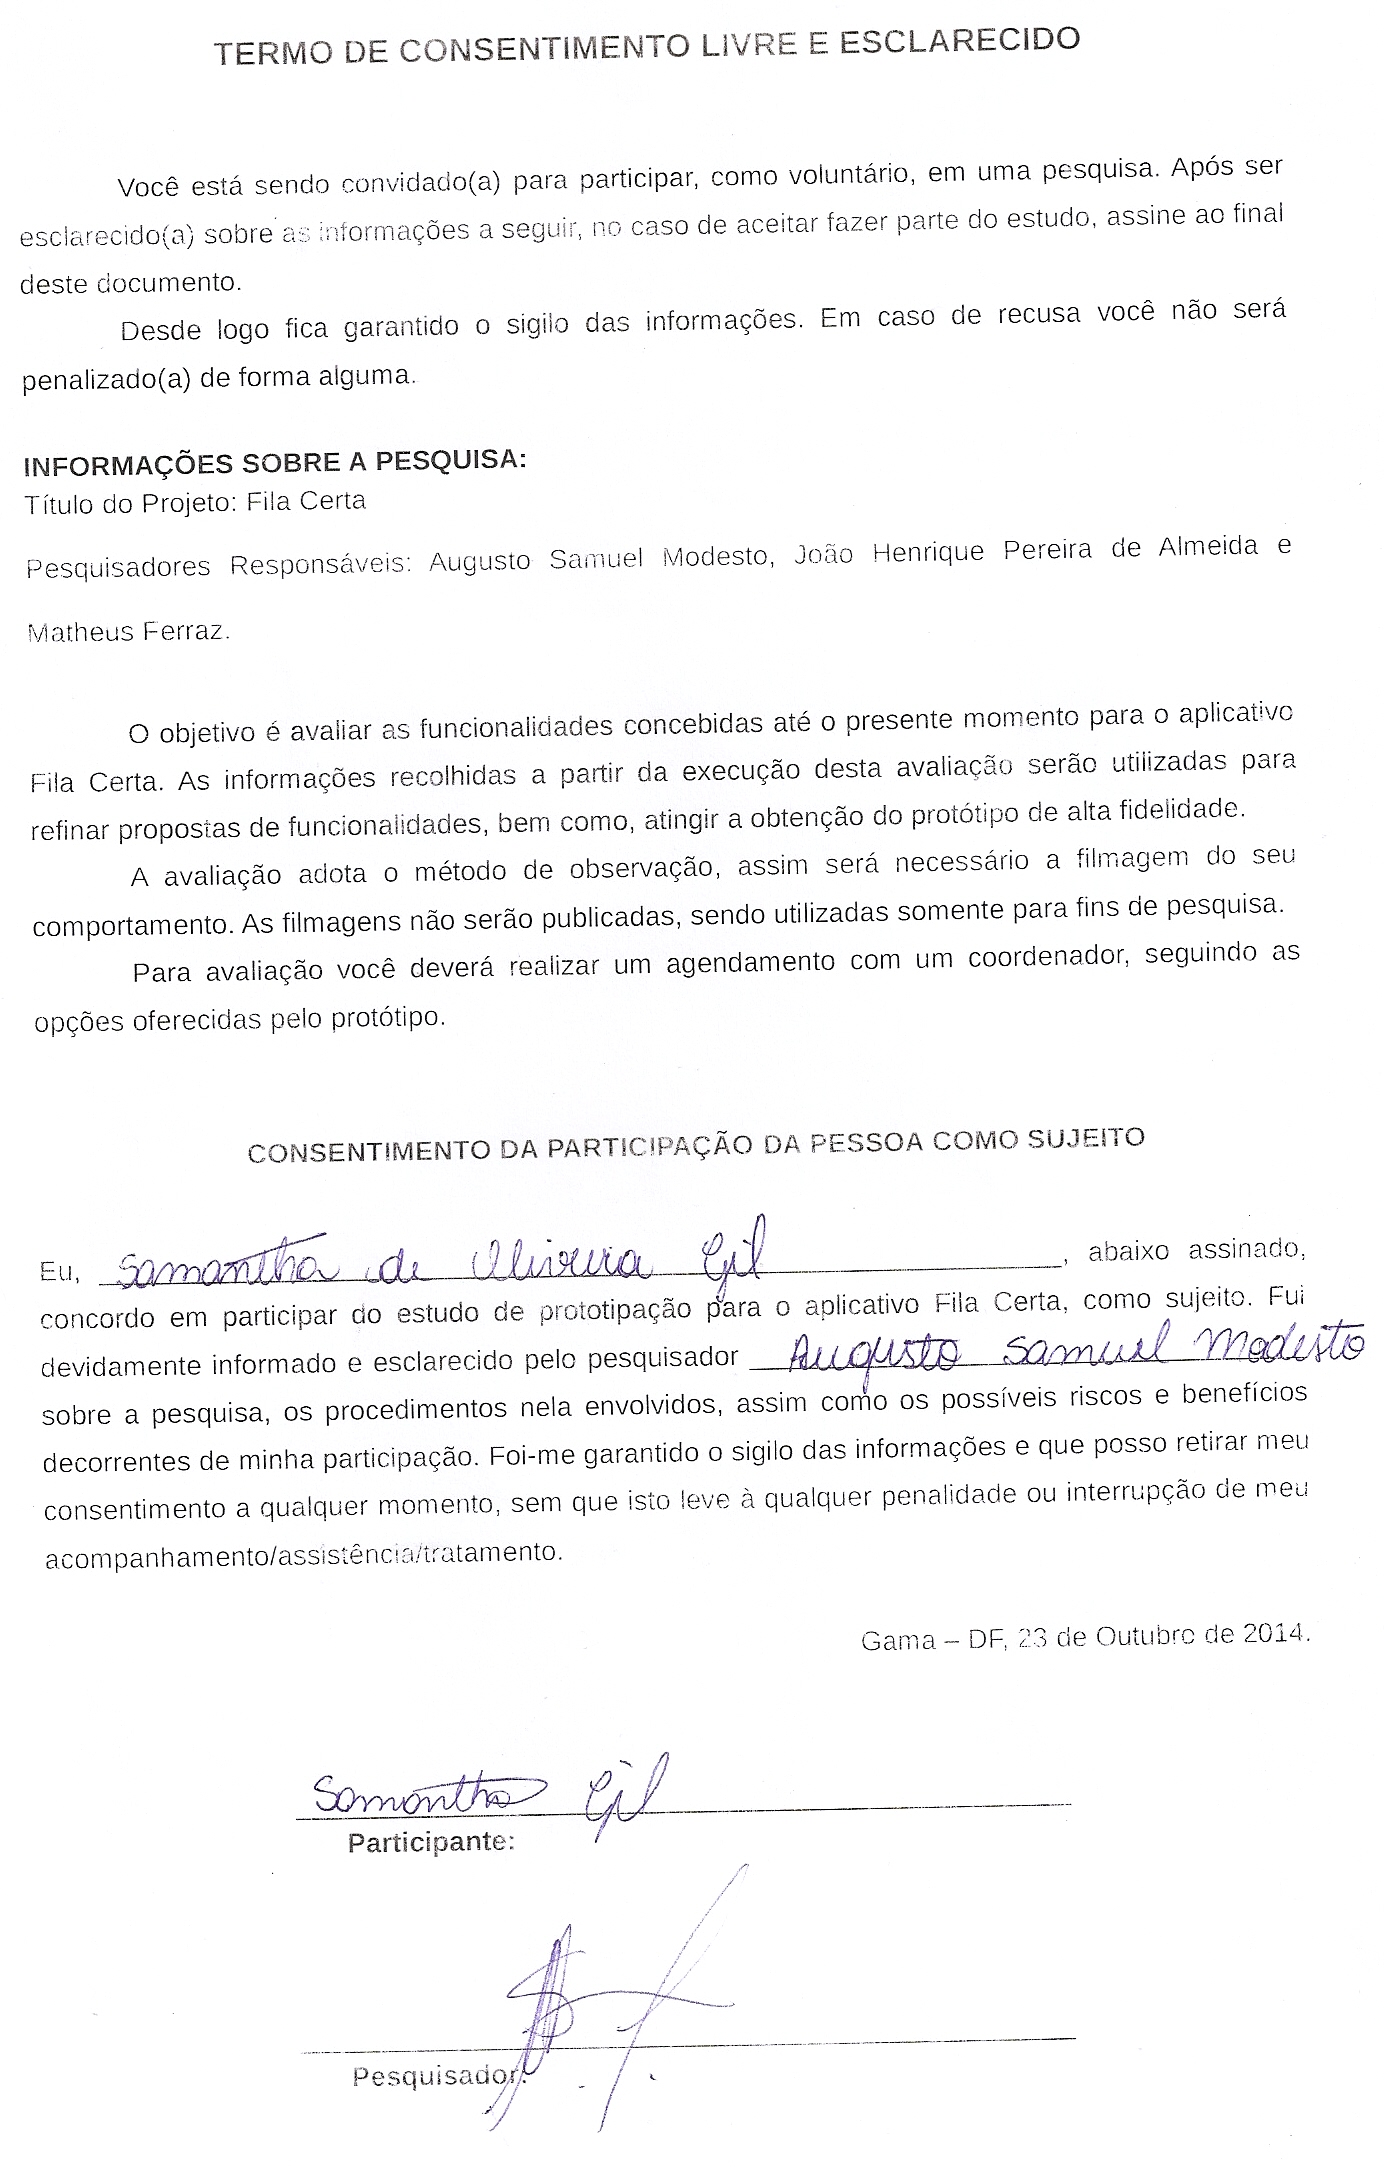 TERMO DE CONSENTIMENTO LIVRE E ESCLARECIDO
Você está sendo convidado(a) para participar, como voluntário, em uma pesquisa. Após ser
esclarecido(a) sobre as informações a seguir, no caso de aceitar fazer parte do estudo, assine ao final
deste documento.
Desde logo fica garantido o sigilo das informações. Em caso de recusa você não será
penalizado(a) de forma alguma.
INFORMAÇÕES SOBRE A PESQUISA:
Título do Projeto: Fila Certa
Pesquisadores Responsáveis: Augusto Samuel Modesto, João Henrique Pereira de Almeida e
Matheus Ferraz.
O objetivo é avaliar as funcionalidades concebidas até o presente momento para o aplicativo
Fila Certa. As informações recolhidas a partir da execução desta avaliação serão utilizadas para
refinar propostas de funcionalidades, bem como, atingir a obtenção do protótipo de alta fidelidade.
A avaliação adota o método de observação, assim será necessário a filmagem do seu
comportamento. As filmagens não serão publicadas, sendo utilizadas somente para fins de pesquisa.
Para avaliação você deverá realizar um agendamento com um coordenador, seguindo as
opções oferecidas pelo protótipo.
CONSENTIMENTO DA PARTICIPAÇÃO DA PESSOA COMO SUJEITO
Eu, Samantha de Oliveira Gil, abaixo assinado,
concordo em participar do estudo de prototipação para o aplicativo Fila Certa, como sujeito. Fui
devidamente informado e esclarecido pelo pesquisador Augusto Samuel Modesto
sobre a pesquisa, os procedimentos nela envolvidos, assim como os possíveis riscos e benefícios
decorrentes de minha participação. Foi-me garantido o sigilo das informações e que posso retirar meu
consentimento a qualquer momento, sem que isto leve à qualquer penalidade ou interrupção de meu
acompanhamento/assistência/tratamento.
Gama – DF, 23 de Outubro de 2014.
Samantha Gil
Participante:
Pesquisador: